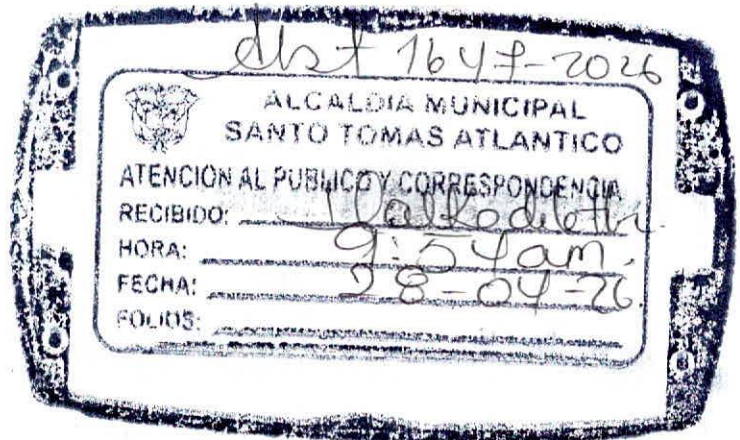 1647-2026
ALCALDIA MUNICIPAL
SANTO TOMAS ATLANTICO
ATENCION AL PUBLICO Y CORRESPONDENCIA
RECIBIDO:
HORA: 9:54am.
FECHA: 28-04-26.
FOLIOS: